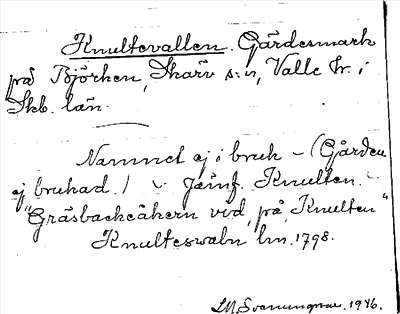 Knultevallen. Gärdesmark
på Björken, Skärv s:n, Valle hr. i
Skb. län.
Namnet ej i bruk – (Gården
ej brukad.) Jämf. Knulten.
"Gräsbackeåkern vid, på, Knulten"
Knulteswaln lm. 1798.
1946.